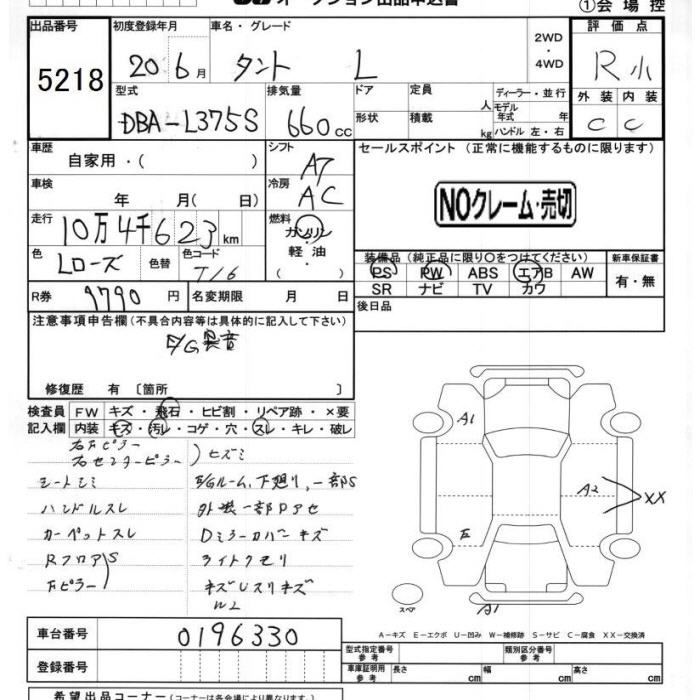 オークション出品申込書
①会場控
出品番号
5218
初度登録年月
20 6月
車名・グレード
タント L
2WD
・
4WD
評価点
R 小
型式
DBA-L375S
排気量
660cc
ドア
形状
定員
人
積載
kg
ディーラー・並行
モデル年式 年
ハンドル 左・右
外装 内装
C C
車歴
自家用・( )
シフト
AT
車検
年 月(日)
冷房
AC
走行
10万4千623km
燃料
ガソリン
軽油
・
色
Lローズ
色替
色コード
T16
R券
9790円
名変期限 月 日
セールスポイント(正常に機能するものに限ります)
NOクレーム・売切
装備品(純正品に限り○をつけてください)
PS PW ABS エアB AW
SR ナビ TV カワ
新車保証書
有・無
後日品
注意事項申告欄(不具合内容等は具体的に記入して下さい)
E/G異音
修復歴 有 〔箇所 〕
検査員記入欄
FW キズ・飛石・ヒビ割・リペア跡・×要
内装 キズ・汚レ・コゲ・穴・スレ・キレ・破レ
右センターピラー
ヒズミ
シートシミ
E/Gルーム、下廻リ、一部S
ハンドルスレ
外装一部Pアセ
カーペットスレ
Dミラーカバーキズ
RフロアS
ライトクモリ
ピラー
WL
A1
A2
XX
A1
スペア
A-キズ E-エクボ U-凹み W-補修跡 S-サビ C-腐食 XX-交換済
車台番号
0196330
登録番号
型式指定番号 参考
類別区分番号 参考
車庫証明用 参考
長さ cm
幅 cm
高さ cm
希望出品コーナー(コーナーは各会場により